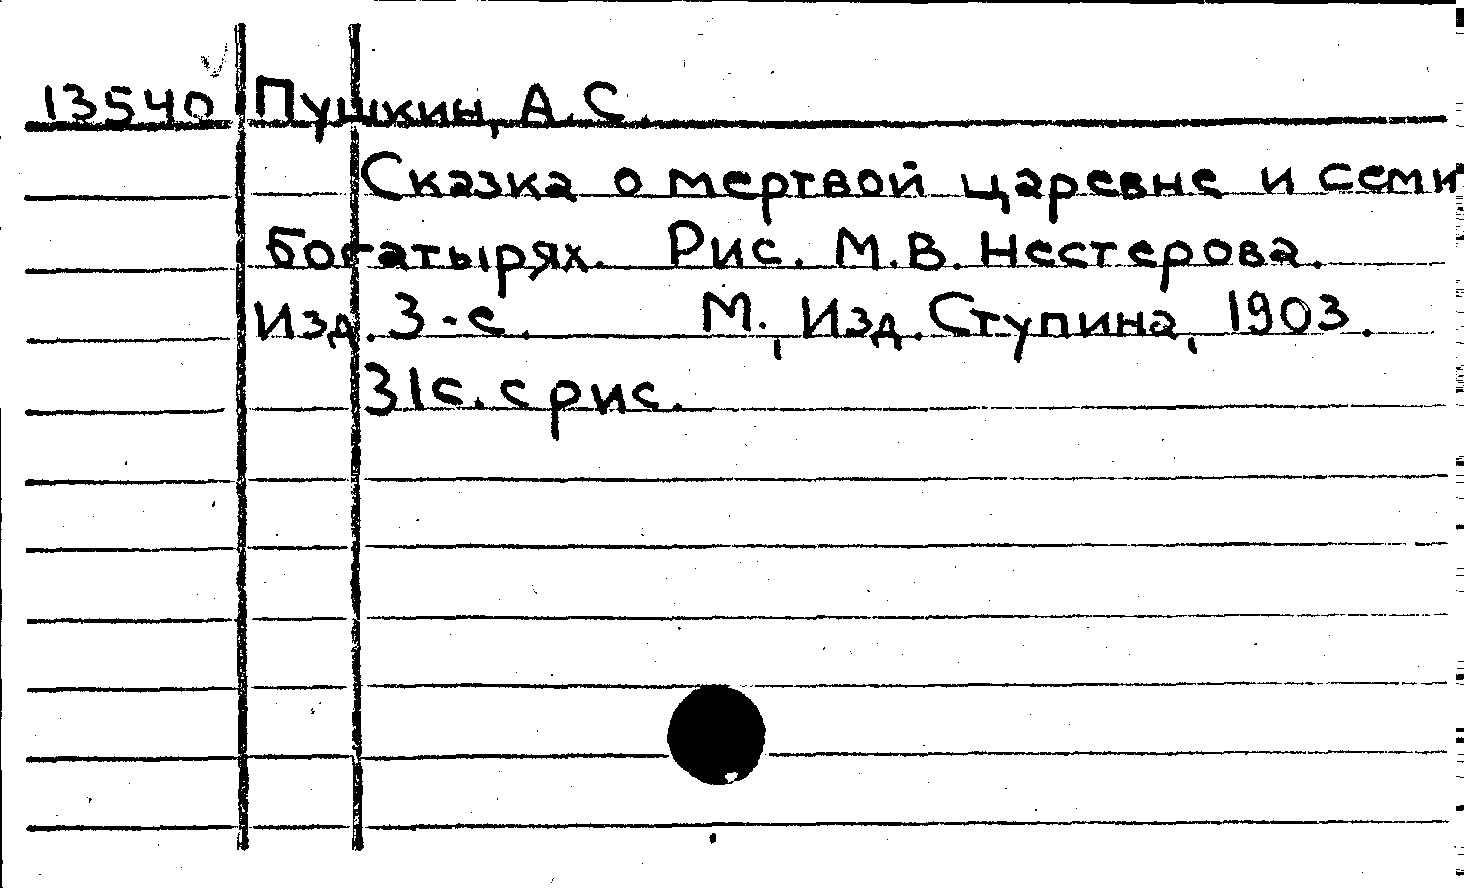 13540 Пушкин, А.С.
Сказка о мертвой царевне и семи
богатырях. Рис. М.В. Нестерова.
Изд. 3-е. М., Изд. Ступина, 1903.
31с. с рис.